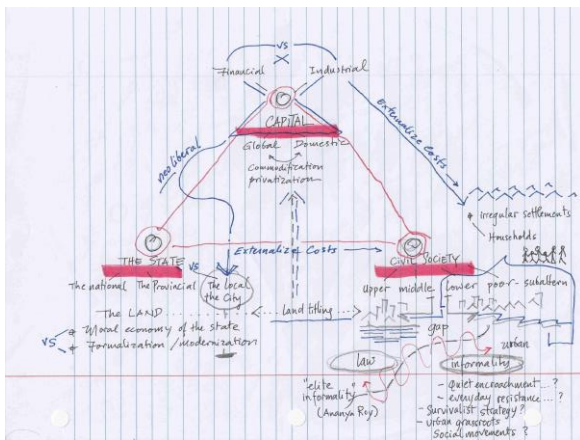 vs
Financial Industrial
CAPITAL
Global Domestic
Commodification
privatization
neoliberal
Externalize Costs
* Irregular settlements
Households
Externalize Costs
THE STATE
vs
The national The Provincial The Local
the City
CIVIL SOCIETY
Upper middle lower poor-subaltern
The LAND
land titling
vs
* Moral economy of the state
* Formalization / modernization
gap
law
urban
informality
"elite
informality"
(Ananya Roy)
- quiet encroachment...?
- everyday resistance...?
- Survivalist strategy?
- Urban grassroots
Social movements?